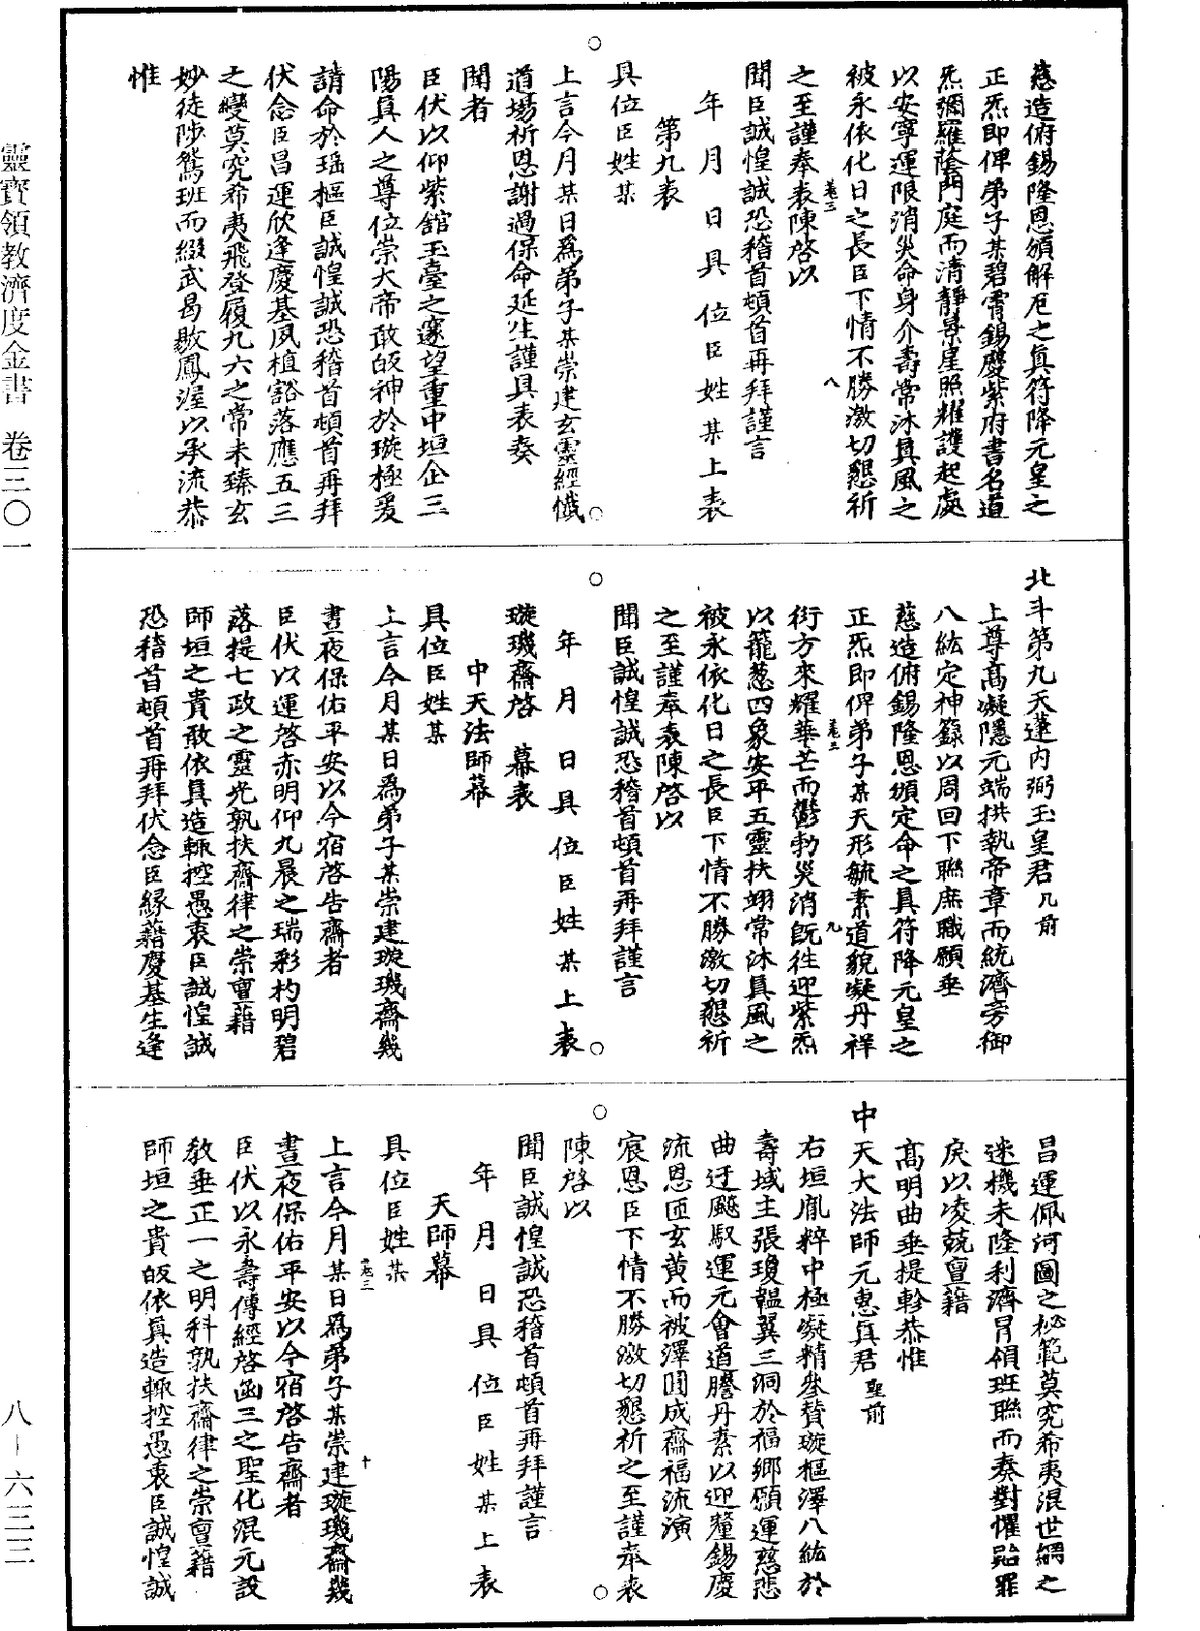 慈造俯錫隆恩頒解厄之真符降元皇之
正炁即俾弟子某碧霄錫慶紫府書名道
炁彌羅蔭門庭而清靜景星照耀護起處
以安寧運限消災命身介壽常沐真風之
被永依化日之長臣下情不勝激切懇祈
之至謹奉表陳啓以
聞臣誠惶誠恐稽首頓首再拜謹言
年 月 日具位臣姓某上表
第九表
具位臣姓某
上言今月某日為弟子某崇建玄靈經懺
道場祈恩謝過保命延生謹具表奏
聞者
臣伏以仰紫舘玉臺之邃望重中垣企三
陽真人之尊位崇大帝敢皈神於璇極爰
請命於瑶樞臣誠惶誠恐稽首頓首再拜
伏念臣昌運欣逢慶基夙植豁落應五三
之變莫究希夷飛登履九六之常未臻玄
妙徒陟鴛班而綴武曷敭鳳渥以承流恭
惟
北斗第九天蓬内弼玉皇君几前
上尊高凝隱元端拱執帝章而統濟旁御
八紘定神籙以周回下聯庶職願垂
慈造俯錫隆恩頒定命之真符降元皇之
正炁即俾弟子某天形毓素道貌凝丹祥
衍方來耀華芒而鬱勃災消既往迎紫炁
以籠葱四象安平五靈扶翊常沐真風之
被永依化日之長臣下情不勝激切懇祈
之至謹奉表陳啓以
聞臣誠惶誠恐稽首頓首再拜謹言
年 月 日具位臣姓某上表
璇璣齋啓 幕表
中天法師幕
具位臣姓某
上言今月某日為弟子某崇建璇璣齋幾
晝夜保佑平安以今宿啓告齋者
臣伏以運啓赤明仰九晨之瑞彩杓明碧
落提七政之靈光孰扶齋律之崇亶藉
師垣之貴敢依真造輒控愚衷臣誠惶誠
恐稽首頓首再拜伏念臣緣藉慶基生逢
昌運佩河圖之秘範莫究希夷混世網之
迷機未隆利濟冐領班聯而奏對懼貽罪
戾以凌兢亶藉
高明曲垂提軫恭惟
中天大法師元惠真君聖前
右垣胤粹中極凝精叅贊璇樞澤八紘於
壽域主張瓊韞翼三洞於福鄉願運慈悲
曲迂飈馭運元會道贍丹素以迎釐錫慶
流恩匝玄黄而被澤圓成齋福流演
宸恩臣下情不勝激切懇祈之至謹奉表
陳啓以
聞臣誠惶誠恐稽首頓首再拜謹言
年 月 日具位臣姓某上表
天師幕
具位臣姓某
上言今月某日為弟子某崇建璇璣齋幾
晝夜保佑平安以今宿啓告齋者
臣伏以永壽傳經啓函三之聖化混元設
教垂正一之明科孰扶齋律之崇亶藉
師垣之貴皈依真造輒控愚衷臣誠惶誠
卷三 八
卷三 九
卷三 十
靈寶領教濟度金書 卷三〇一
八－六三三